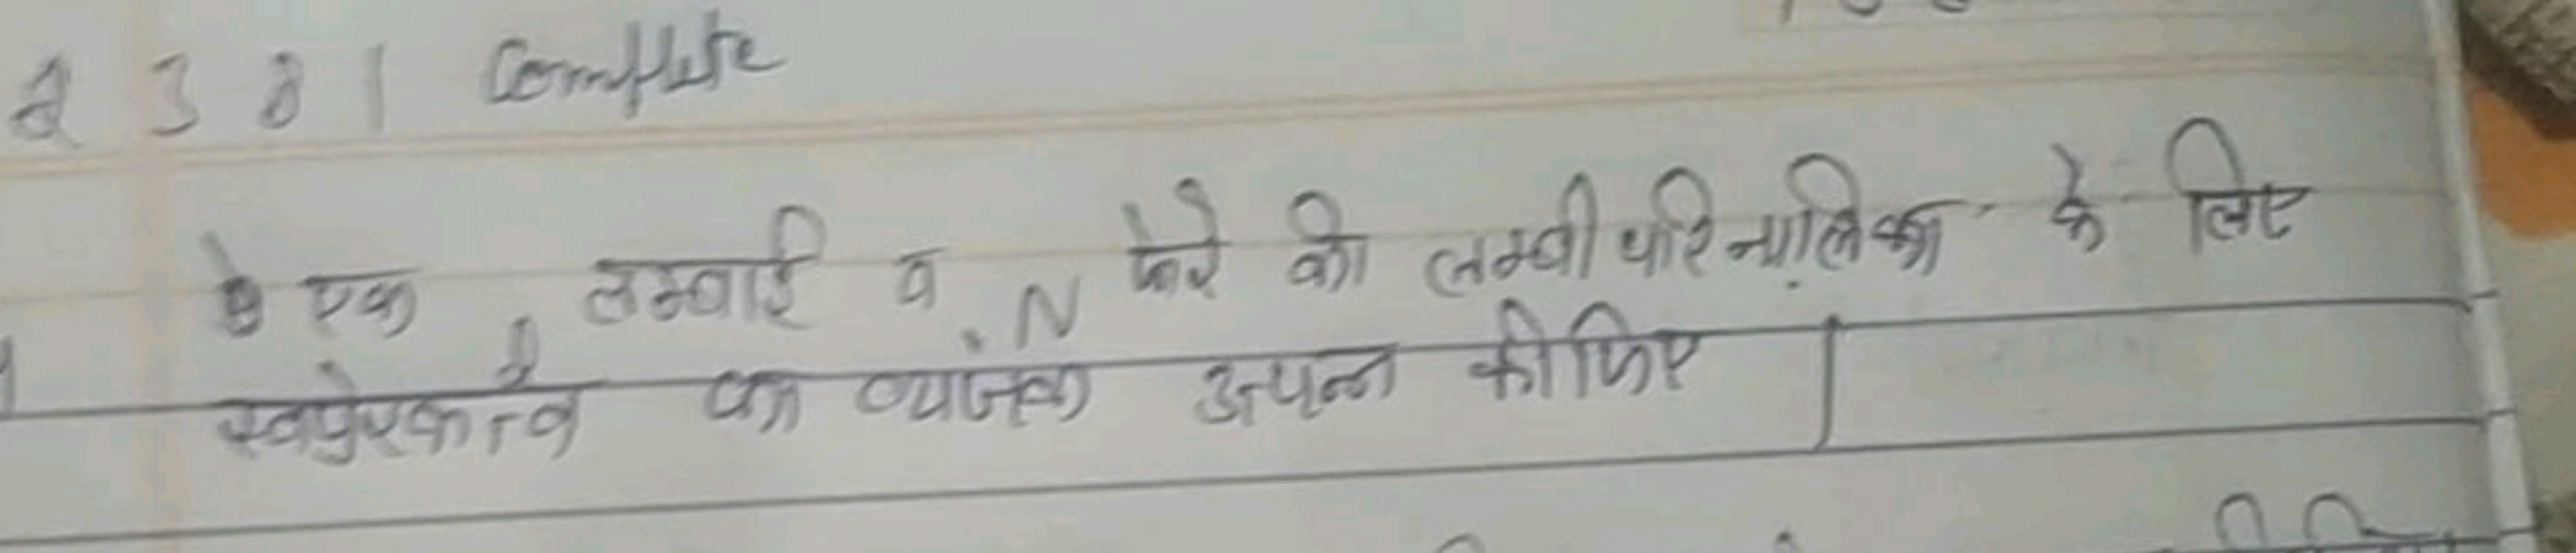 2 3 8 1 Complete
एक l लम्बाई व N फेरे की लम्बी परिनालिका के लिए
स्वप्रेरकत्व का व्यंजक उत्पन्न कीजिए |